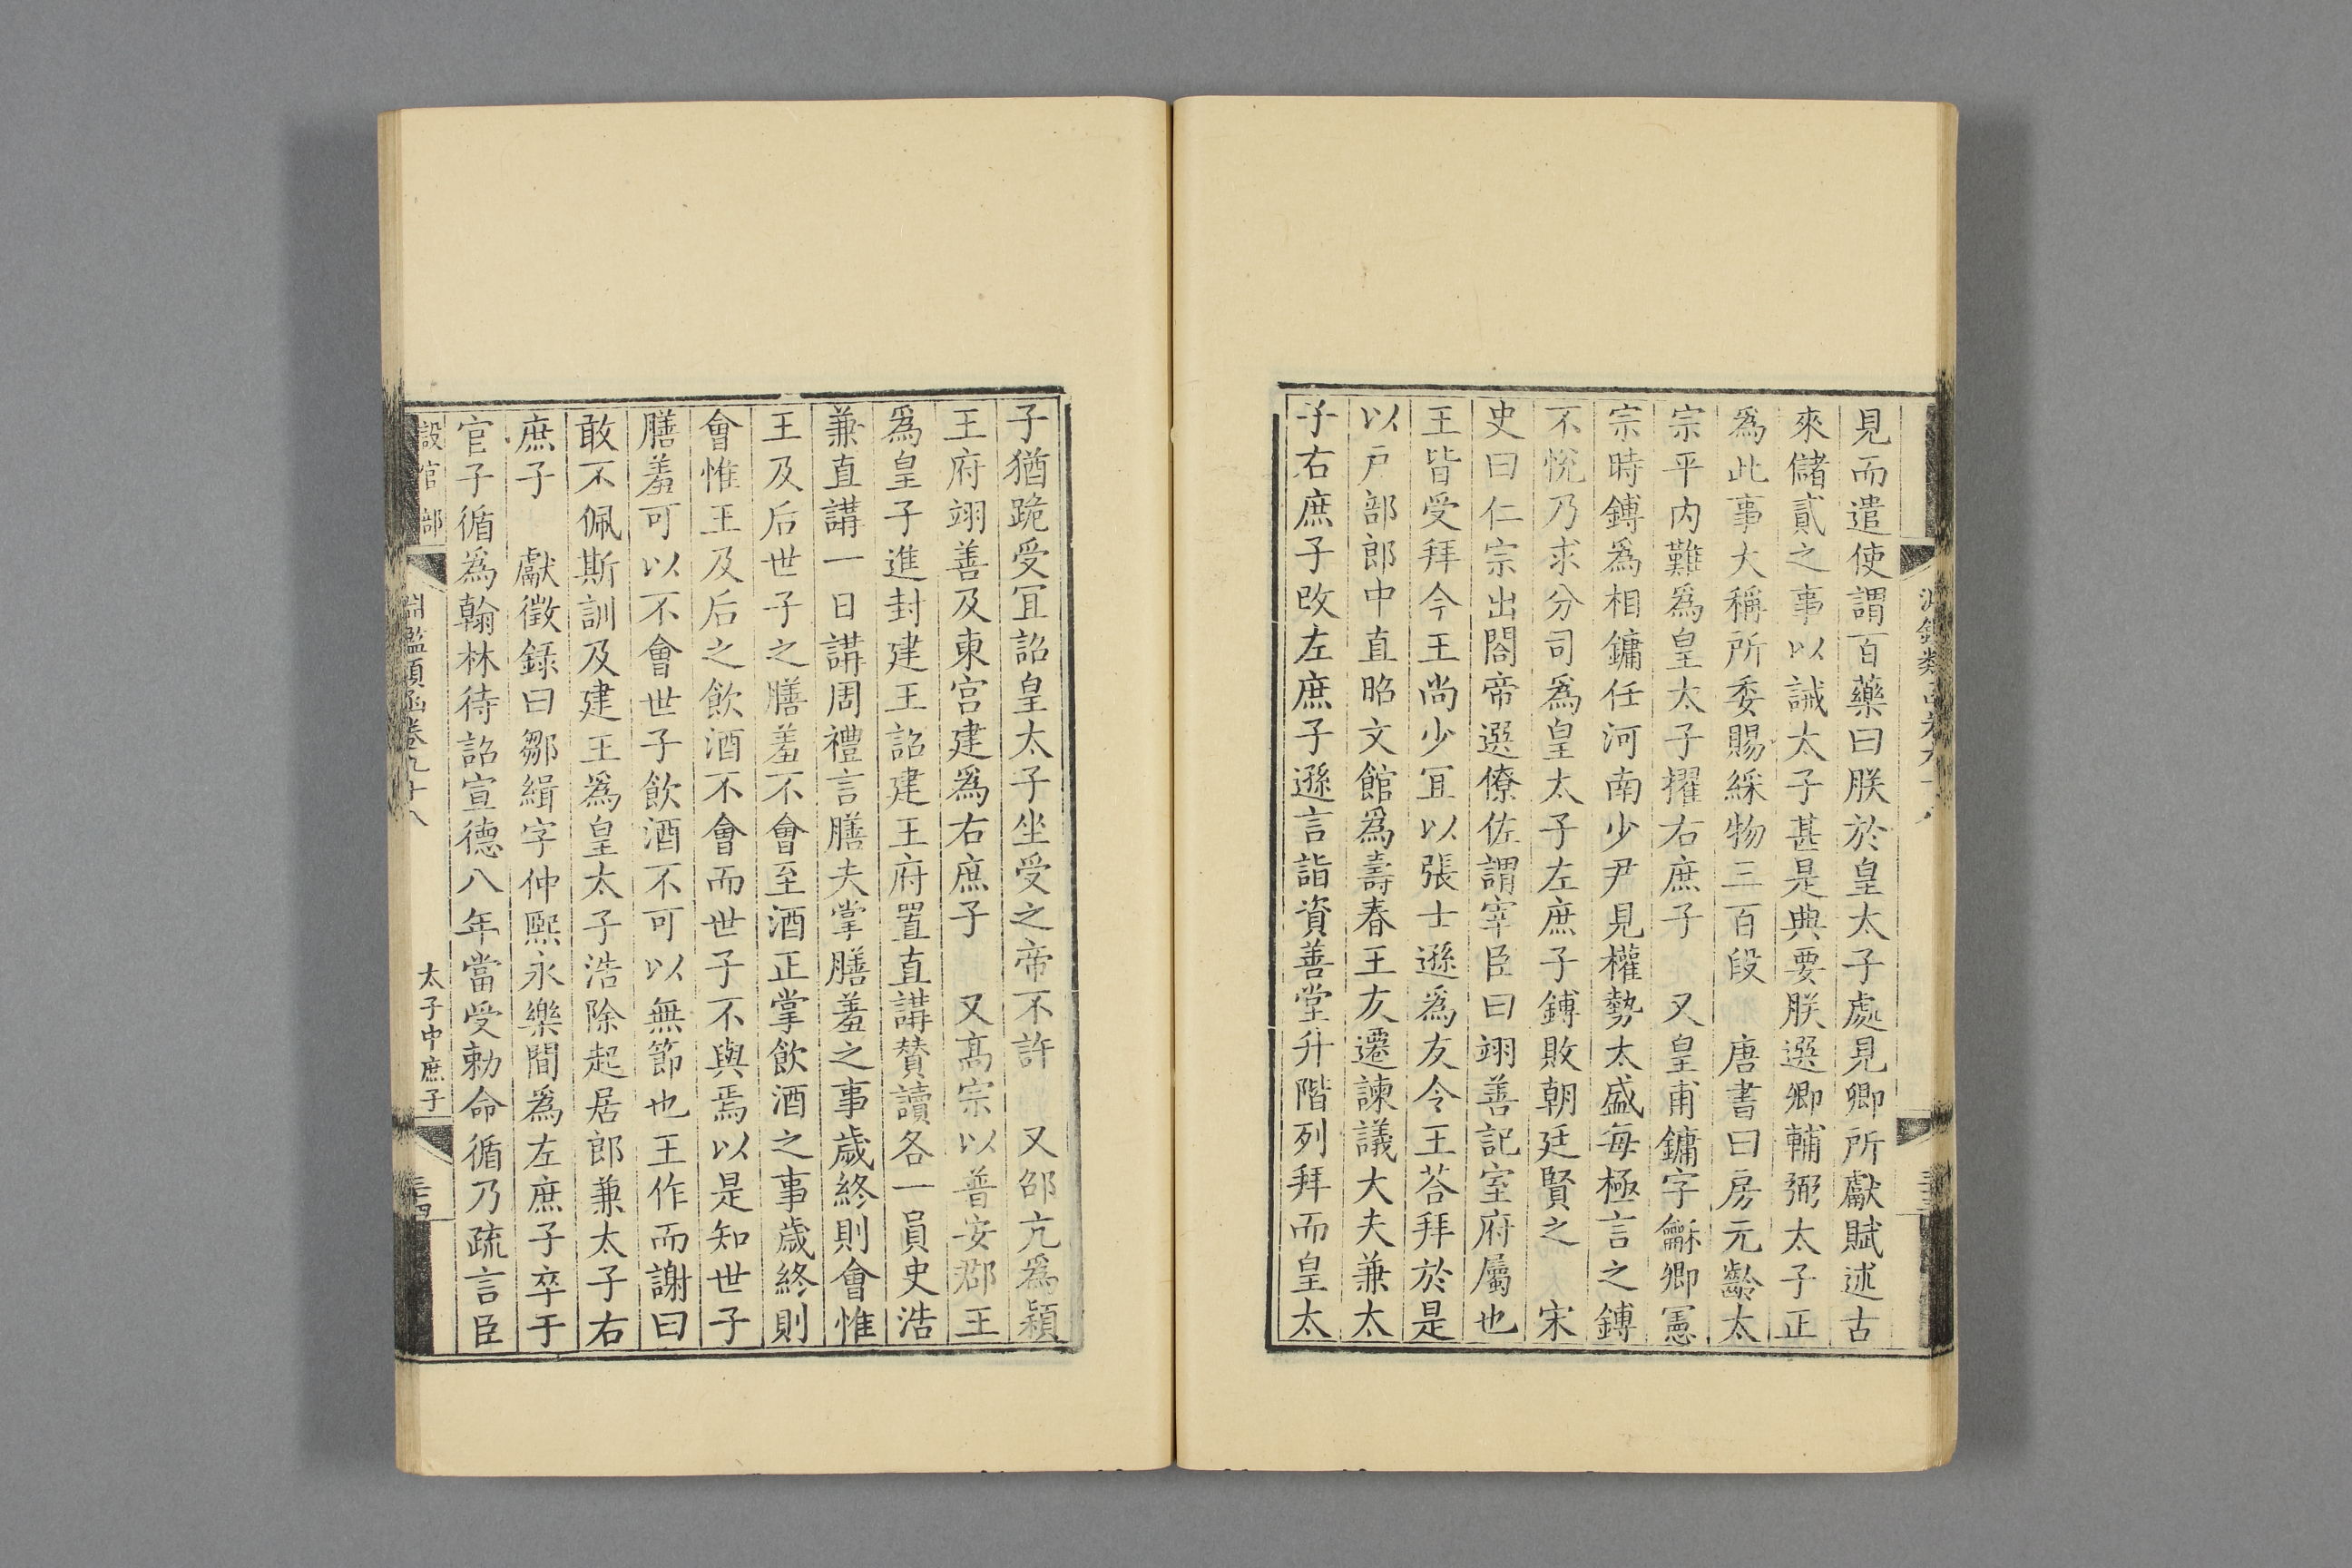 見而遣使謂百藥曰朕於皇太子處見卿所獻賦述古
來儲貳之事以誡太子甚是典要朕選卿輔弼太子正
爲此事大稱所委賜綵物三百段　唐書曰房元齡太
宗平内難爲皇太子擢右庶子　又皇甫鏞字龢卿憲
宗時鎛爲相鏞任河南少尹見權勢太盛每極言之鎛
不悅乃求分司爲皇太子左庶子鎛敗朝廷賢之　宋
史曰仁宗出閤帝選僚佐謂宰臣曰翊善記室府屬也
王皆受拜今王尚少宜以張士遜爲友令王荅拜於是
以戸部郎中直昭文館爲壽春王友遷諫議大夫兼太
子右庶子改左庶子遜言詣資善堂升階列拜而皇太
子猶跪受宜詔皇太子坐受之帝不許　又邵亢爲潁
王府翊善及東宫建爲右庶子　又髙宗以普安郡王
爲皇子進封建王詔建王府置直講賛讀各一員史浩
兼直講一日講周禮言膳夫掌膳羞之事歲終則會惟
王及后世子之膳羞不會至酒正掌飲酒之事歲終則
會惟王及后之飲酒不會而世子不與焉以是知世子
膳羞可以不會世子飲酒不可以無節也王作而謝曰
敢不佩斯訓及建王爲皇太子浩除起居郎兼太子右
庶子　獻徵録曰鄒緝字仲熙永樂間爲左庶子卒于
官子循爲翰林待詔宣德八年當受勅命循乃疏言臣
設官部　淵鑑類函卷九十八　太子中庶子　三十四